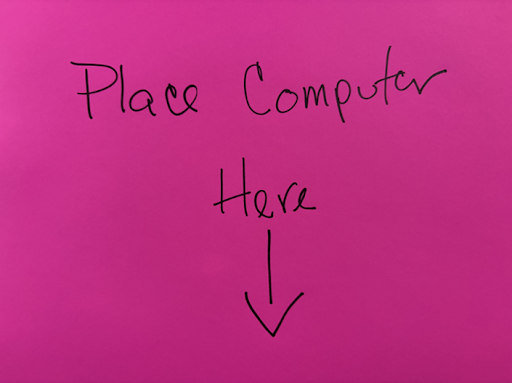 Place Computer
Here